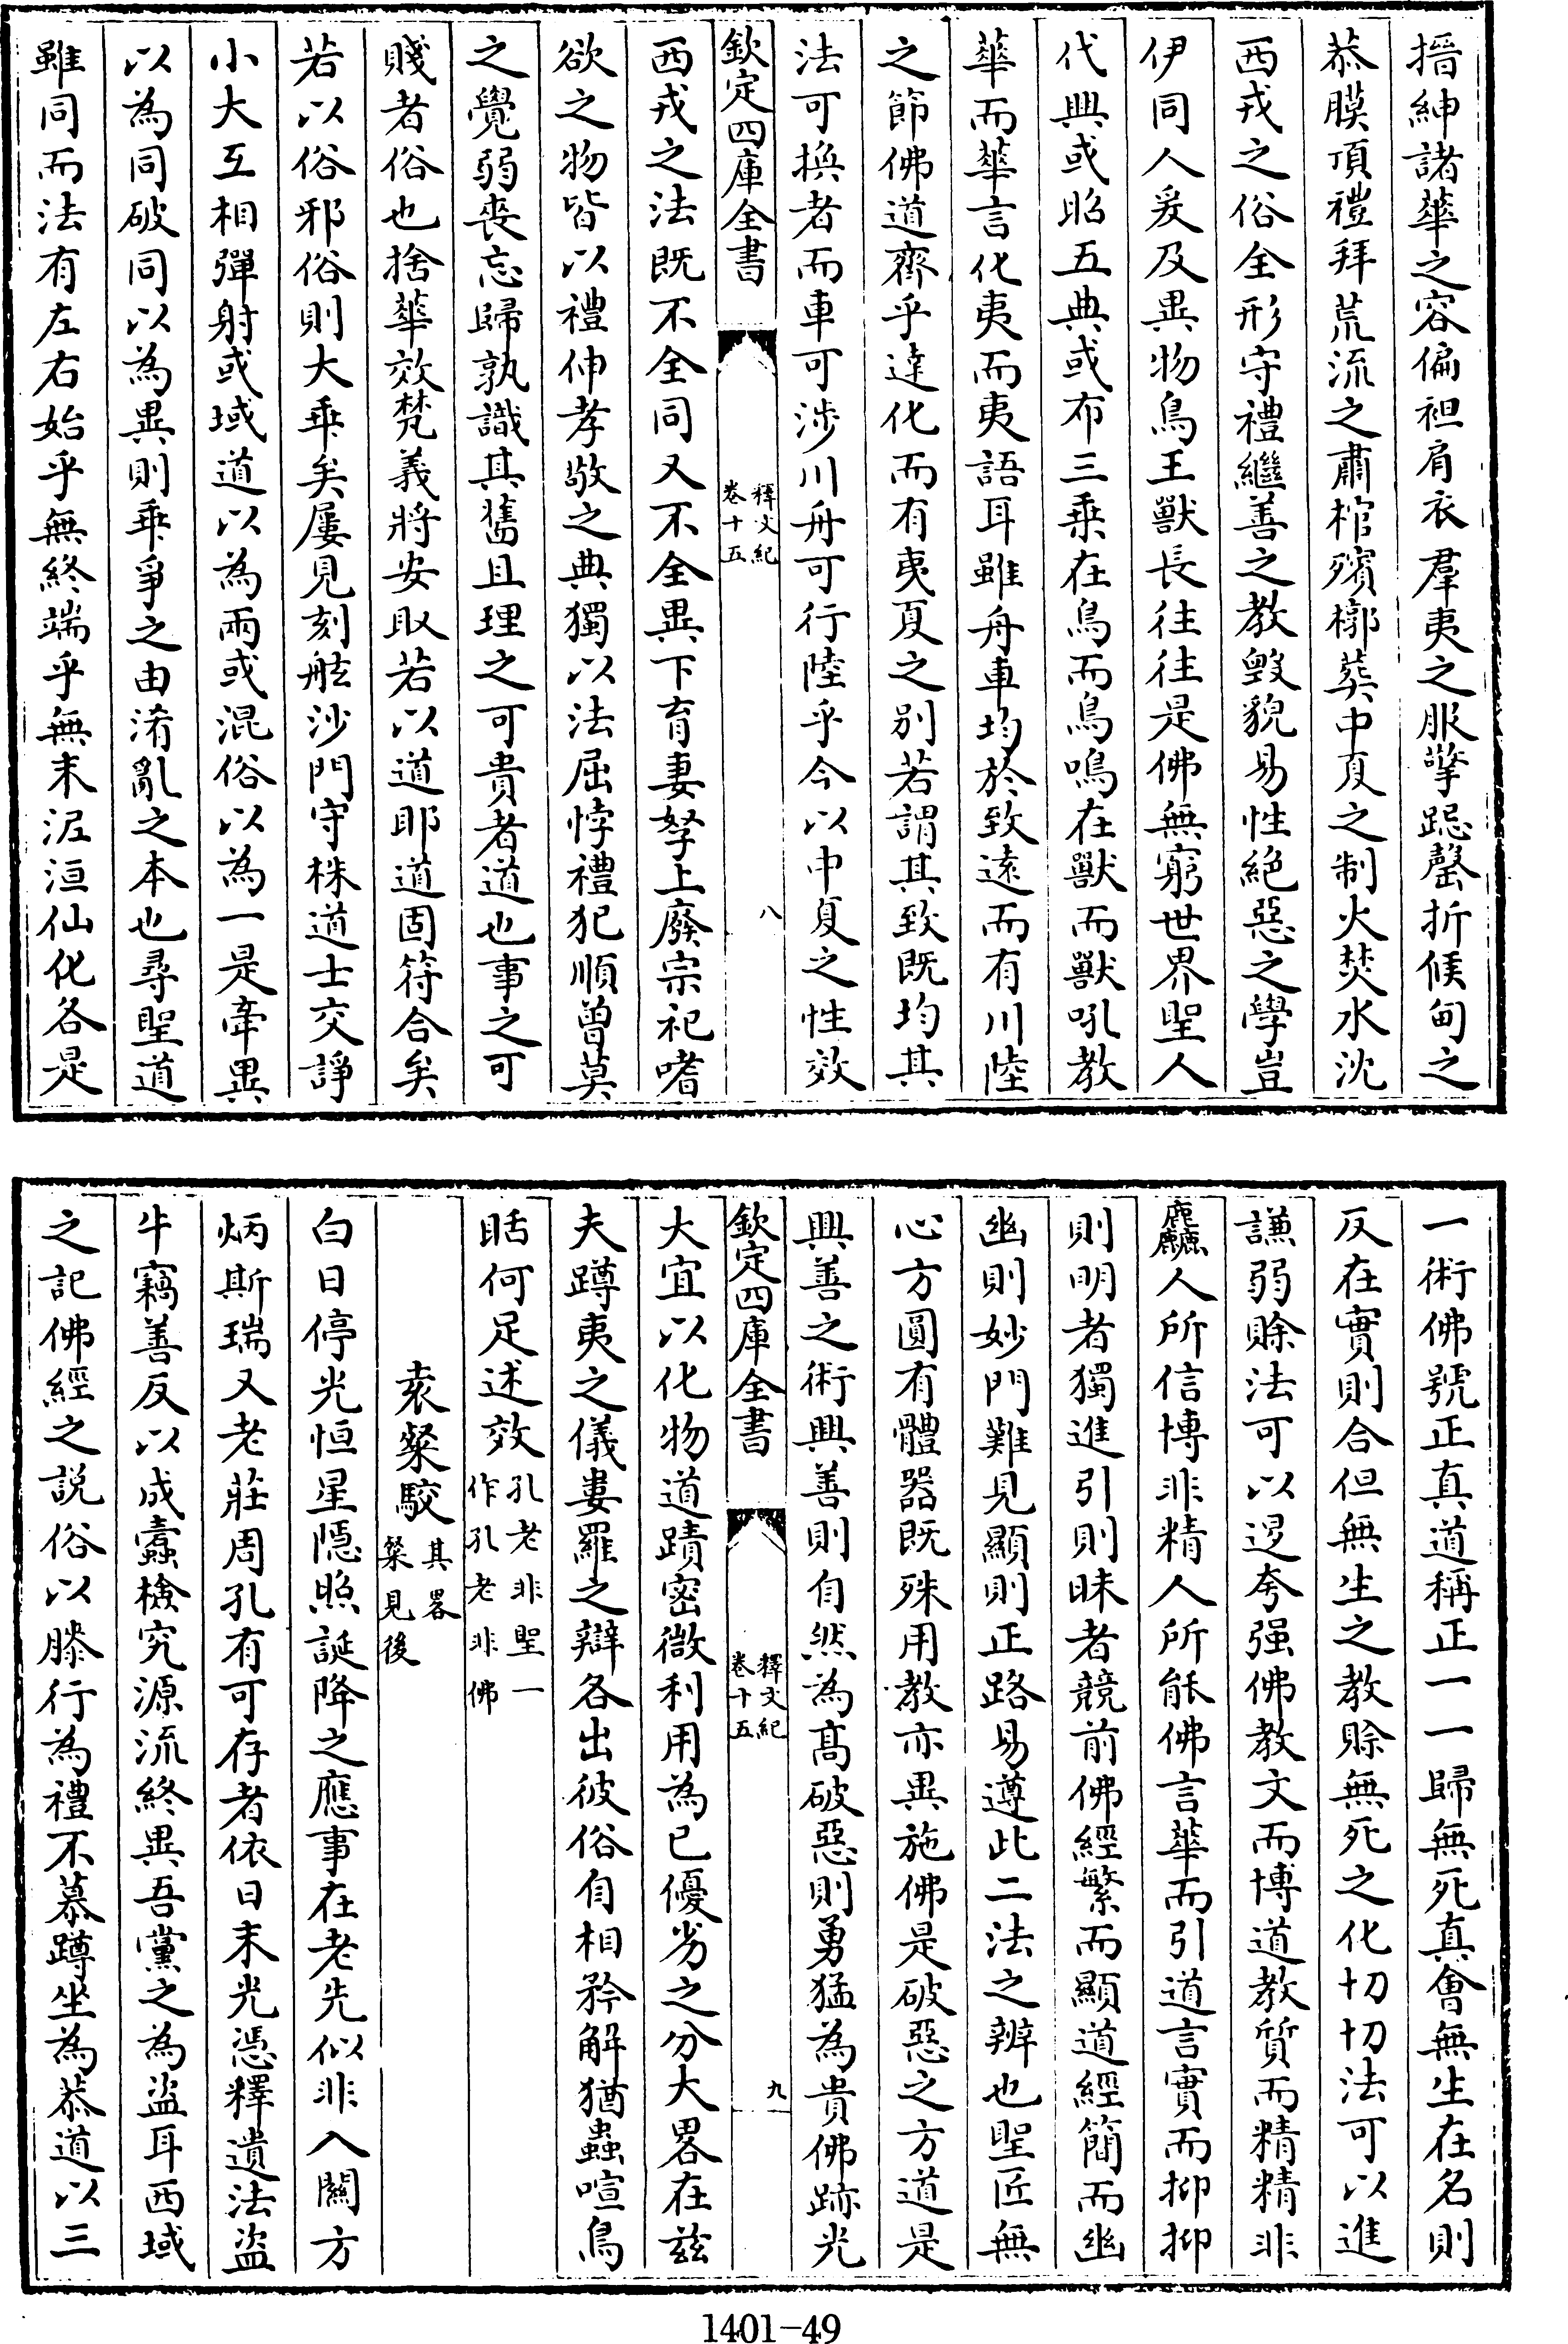 搢紳諸華之容偏袒肩衣羣夷之服擎跽罄折候甸之
恭膜頂禮拜荒流之肅棺殯槨葬中夏之制火焚水沈
西戎之俗全形守禮繼善之教毁貌易性絶惡之學豈
伊同人爰及異物鳥王獸長往往是佛無窮世界聖人
代興或昭五典或布三乗在鳥而鳥鳴在獸而獸吼教
華而華言化夷而夷語耳雖舟車均於致逺而有川陸
之節佛道齊乎達化而有夷夏之别若謂其致既均其
法可換者而車可涉川舟可行陸乎今以中夏之性效
欽定四庫全書
釋文紀
卷十五
八
西戎之法既不全同又不全異下育妻孥上廢宗祀嗜
欲之物皆以禮伸孝敬之典獨以法屈悖禮犯順曾莫
之覺弱喪忘歸孰識其舊且理之可貴者道也事之可
賤者俗也捨華效梵義將安取若以道耶道固符合矣
若以俗邪俗則大乖矣屢見刻舷沙門守株道士交諍
小大互相彈射或域道以為兩或混俗以為一是牽異
以為同破同以為異則乖爭之由淆亂之本也尋聖道
雖同而法有左右始乎無終端乎無末泥洹仙化各是
一術佛號正真道稱正一一歸無死真會無生在名則
反在實則合但無生之教賖無死之化切切法可以進
謙弱賖法可以退夸强佛教文而博道教質而精精非
麤人所信博非精人所能佛言華而引道言實而抑抑
則明者獨進引則昧者競前佛經繁而顯道經簡而幽
幽則妙門難見顯則正路易遵此二法之辨也聖匠無
心方圓有體器既殊用教亦異施佛是破惡之方道是
興善之術興善則自然為髙破惡則勇猛為貴佛跡光
欽定四庫全書
釋文紀
卷十五
九
大宜以化物道蹟密微利用為已優劣之分大畧在兹
夫蹲夷之儀婁羅之辯各出彼俗自相矜解猶蟲喧鳥
聒何足述效孔老非聖一作孔老非佛
袁粲駮其畧粲見後
白日停光恒星隱照誕降之應事在老先似非入關方
炳斯瑞又老莊周孔有可存者依日末光憑釋遺法盜
牛竊善反以成蠹檢究源流終異吾黨之為盜耳西域
之記佛經之説俗以膝行為禮不慕蹲坐為恭道以三
1401-49